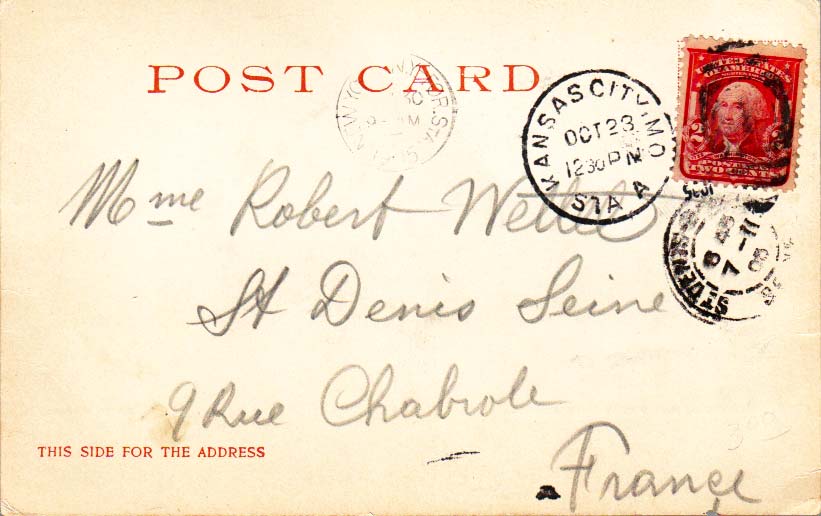 POST CARD
KANSAS CITY, MO
OCT 23
12 30 PM
STA A
UNITED STATES
OF AMERICA
2
TWO CENTS
Mme Robert
St Denis Seine
9 Rue Chabrole
THIS SIDE FOR THE ADDRESS
France